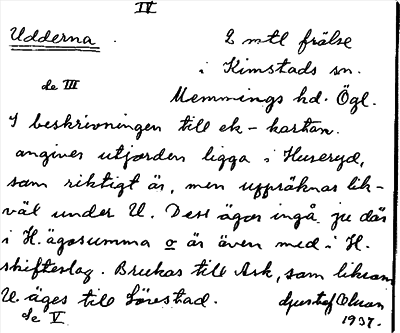 IV
Udderna. 2 mtl frälse
i Kimstads sn.
de III
Memmings hd. Ögl.
I beskrivningen till ek-kartan.
angives utjorden ligga i Huseryd,
som riktigt är, men uppräknas lik-
väl under U. Dess ägor ingå ju där
i H. ägosumma o är även med i H.
skifteslag. Brukas till Ask, som liksom
U. äges till Lörestad. Gustaf Olsson
de V 1937.